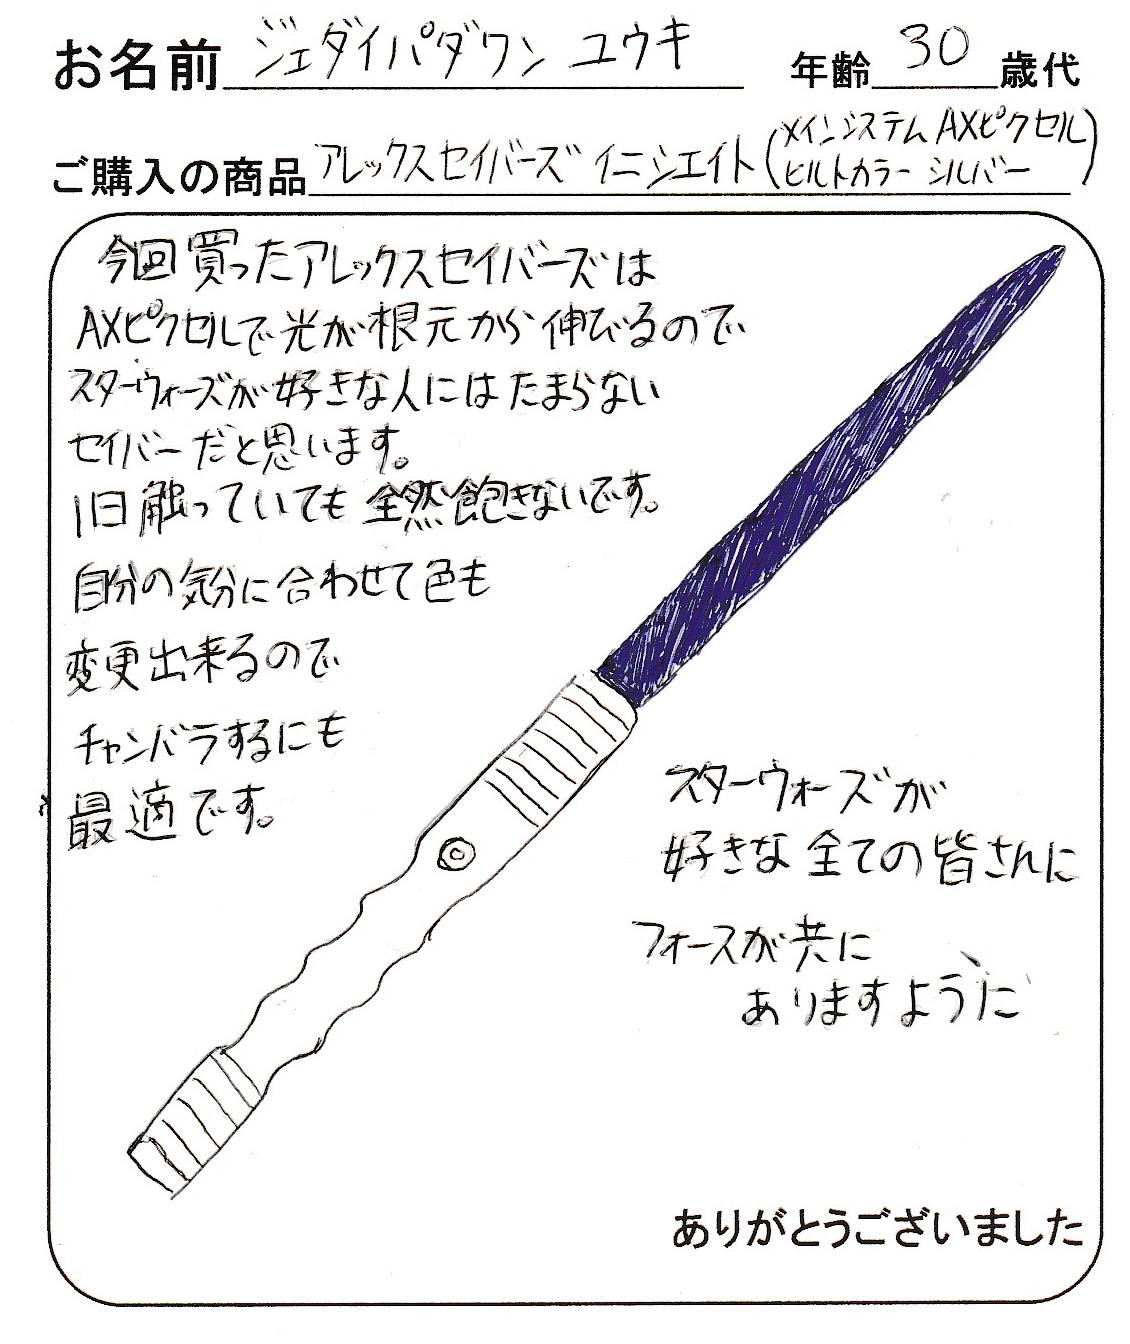 お名前 ジェダイパダワン ユウキ 年齢 30 歳代
ご購入の商品 アレックスセイバーズ イニシエイト (メインシステム AXピクセル
ヒルトカラー シルバー)
今回買ったアレックスセイバーズは
AXピクセルで光が根元から伸びるので
スターウォーズが好きな人にはたまらない
セイバーだと思います。
1日触っていても全然飽きないです。
自分の気分に合わせて色も
変更出来るので
チャンバラするにも
最適です。
スターウォーズが
好きな全ての皆さんに
フォースが共に
ありますように
ありがとうございました